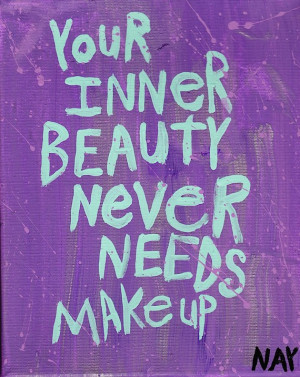 YOUR
INNER
BEAUTY
NeVeR
NEEDS
MAKeuP
NAY